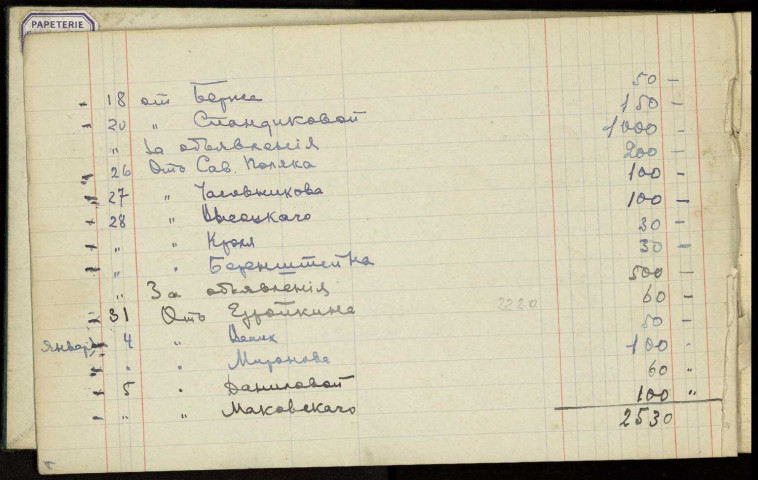 PAPETERIE
18 отъ Берга 50 —
20 " Спандиковой 150 —
" За объявленія 1000 —
26 Отъ Сав. Поляка 200 —
27 " Часовникова 100 —
28 " Высоцкаго 100 —
" " Кроля 30 —
" " Беренштейна 30 —
" За объявленія 500 —
31 Отъ 2220 60 —
Январь 4 " 50 —
" " Миронова 100 "
5 " Даниловой 60 "
" " Маковскаго 100 "
2530